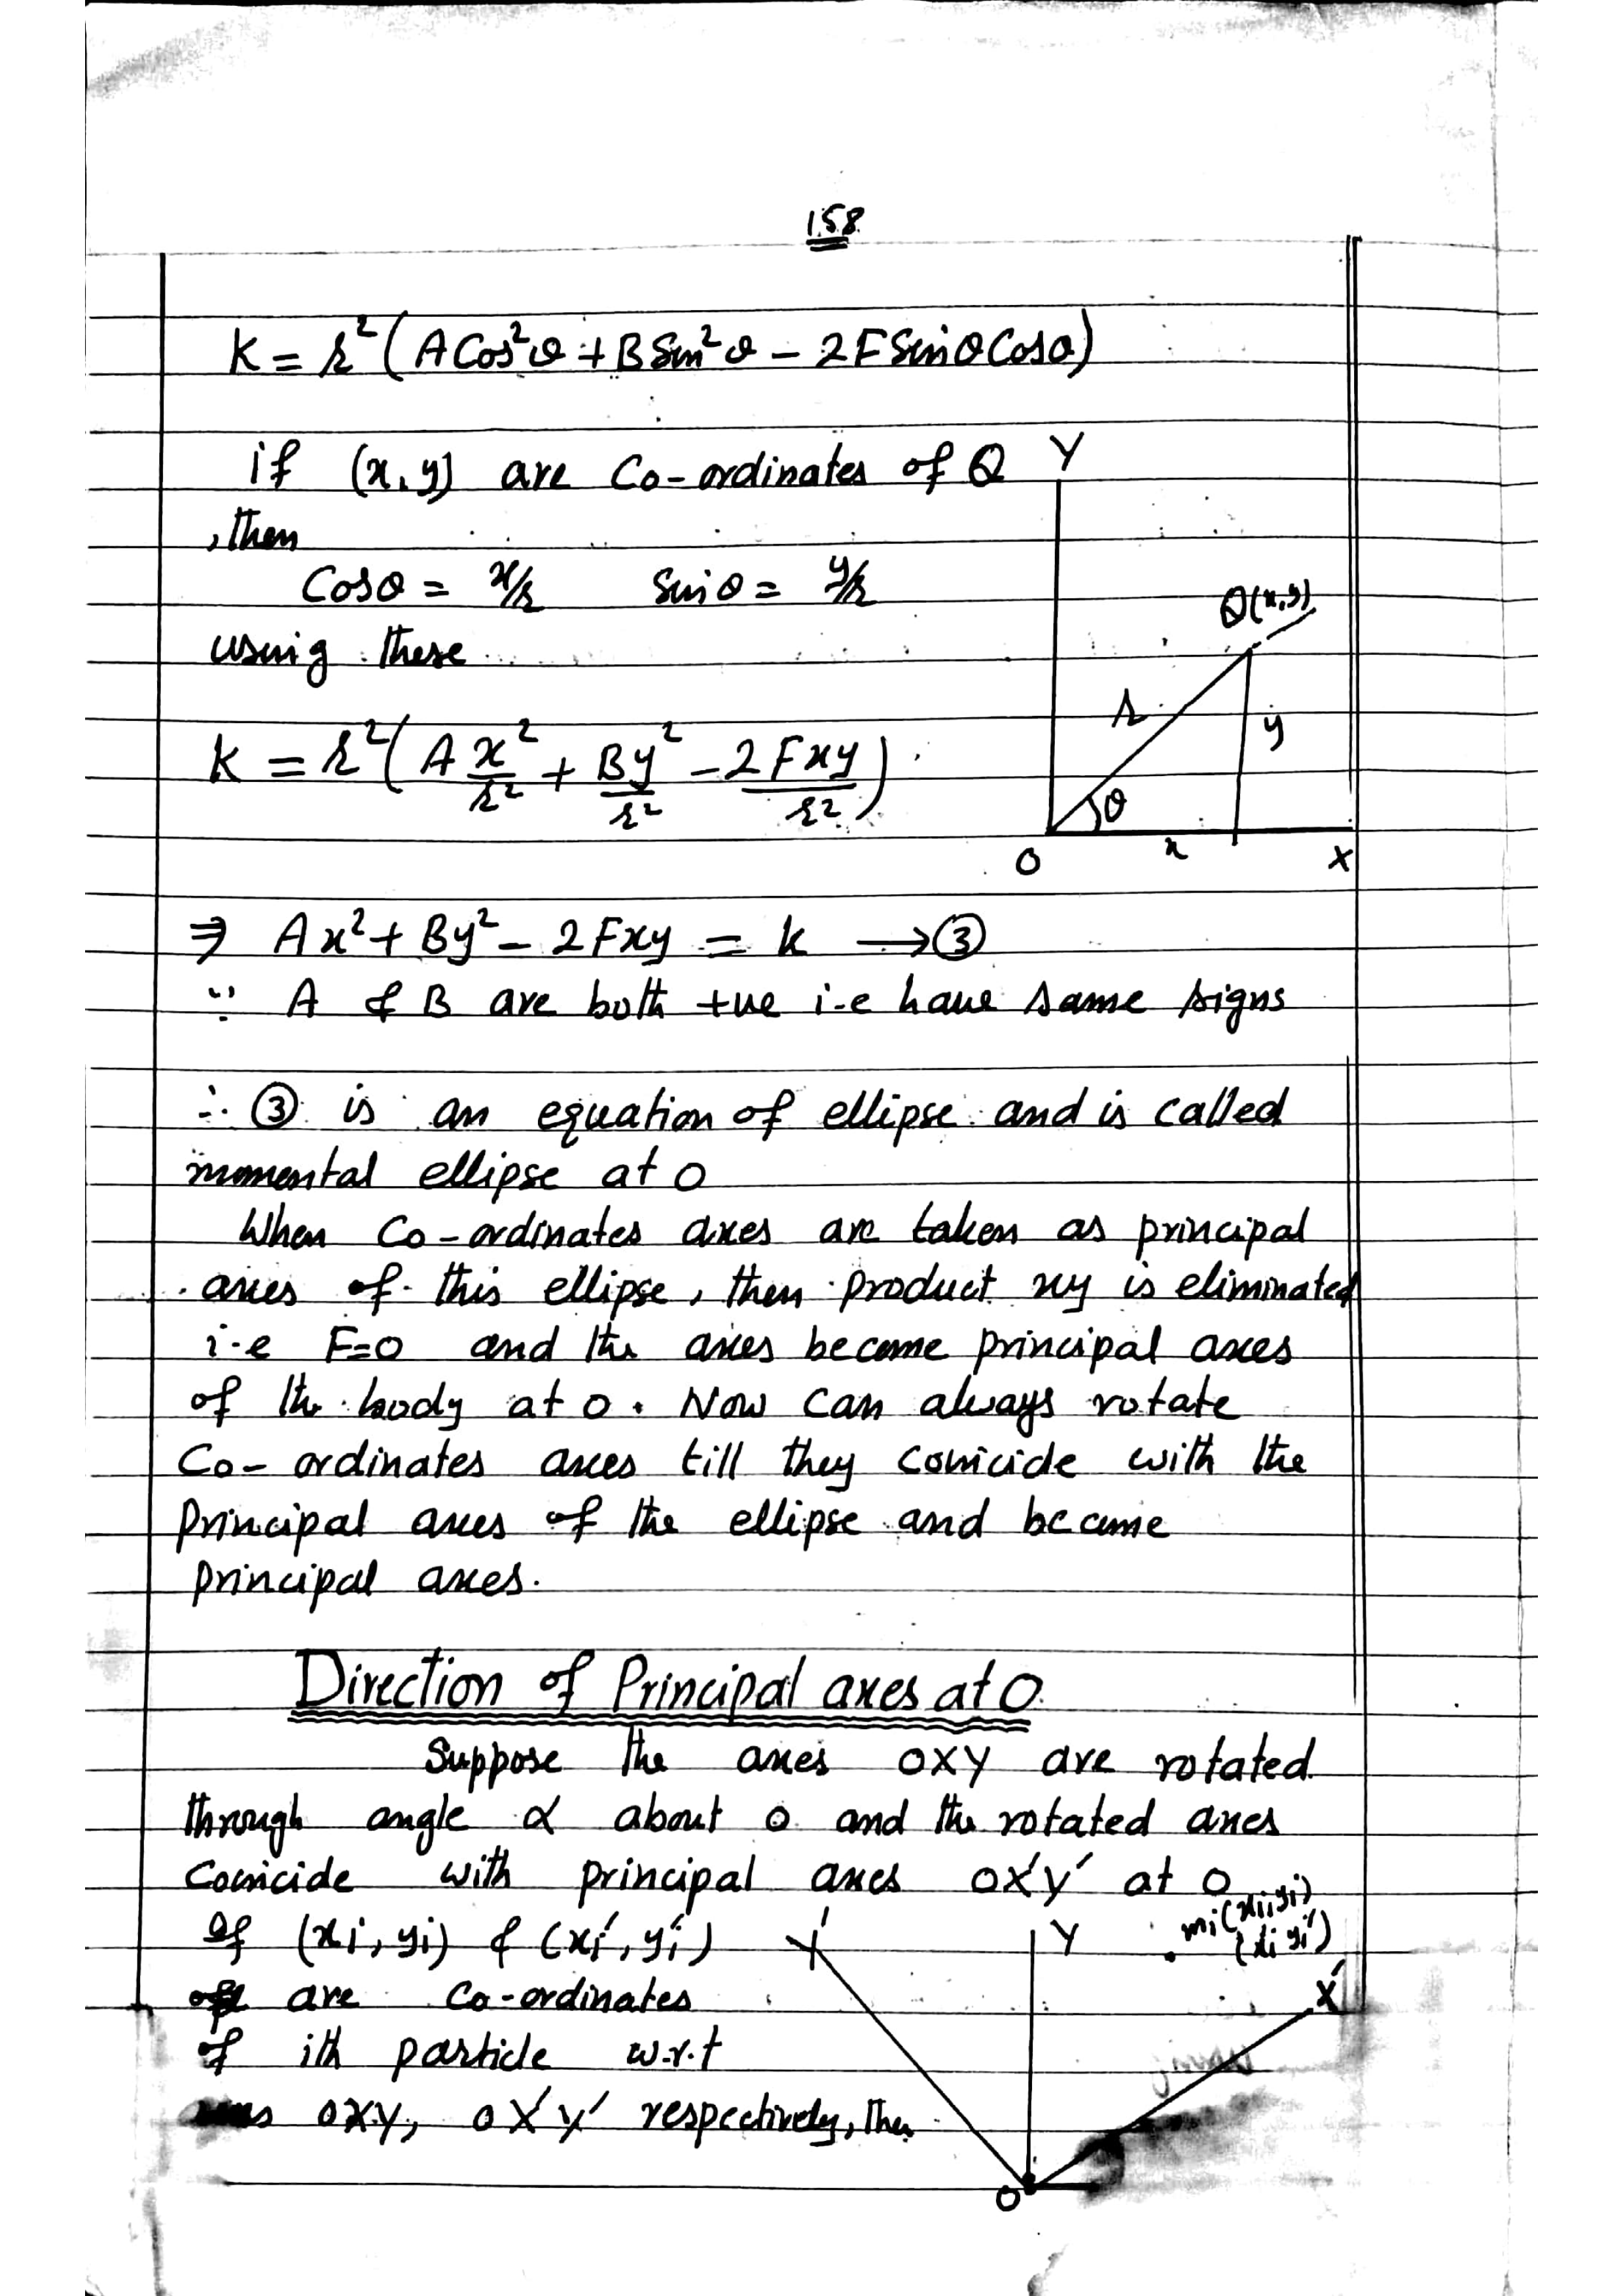 158
K = r²(ACos²θ + BSin²θ - 2FSinθCosθ)
if (x,y) are Co-ordinates of Q
, then
Cosθ = x/r Sinθ = y/r
using these
K = r²(A x²/r² + By²/r² - 2Fxy/r²)
Y
Q(x,y)
r
y
θ
O
x
X
⇒ Ax² + By² - 2Fxy = k → ③
∵ A & B are both +ve i-e have same signs
∴ ③ is an equation of ellipse and is called
momental ellipse at O
When Co-ordinates axes are taken as principal
axes of this ellipse, then product xy is eliminated
i-e F=0 and the axes become principal axes
of the body at O. Now can always rotate
Co-ordinates axes till they conicide with the
Principal axes of the ellipse and become
principal axes.
Direction of Principal axes at O
Suppose the axes OXY are rotated
through angle α about O and the rotated axes
Conicide with principal axes OX'Y' at O
If (xi, yi) & (xi', yi')
are Co-ordinates
of ith particle w.r.t
OXY, OX'Y' respectively, then
Y'
Y
mi(xi,yi)
(xi' yi')
X'
O